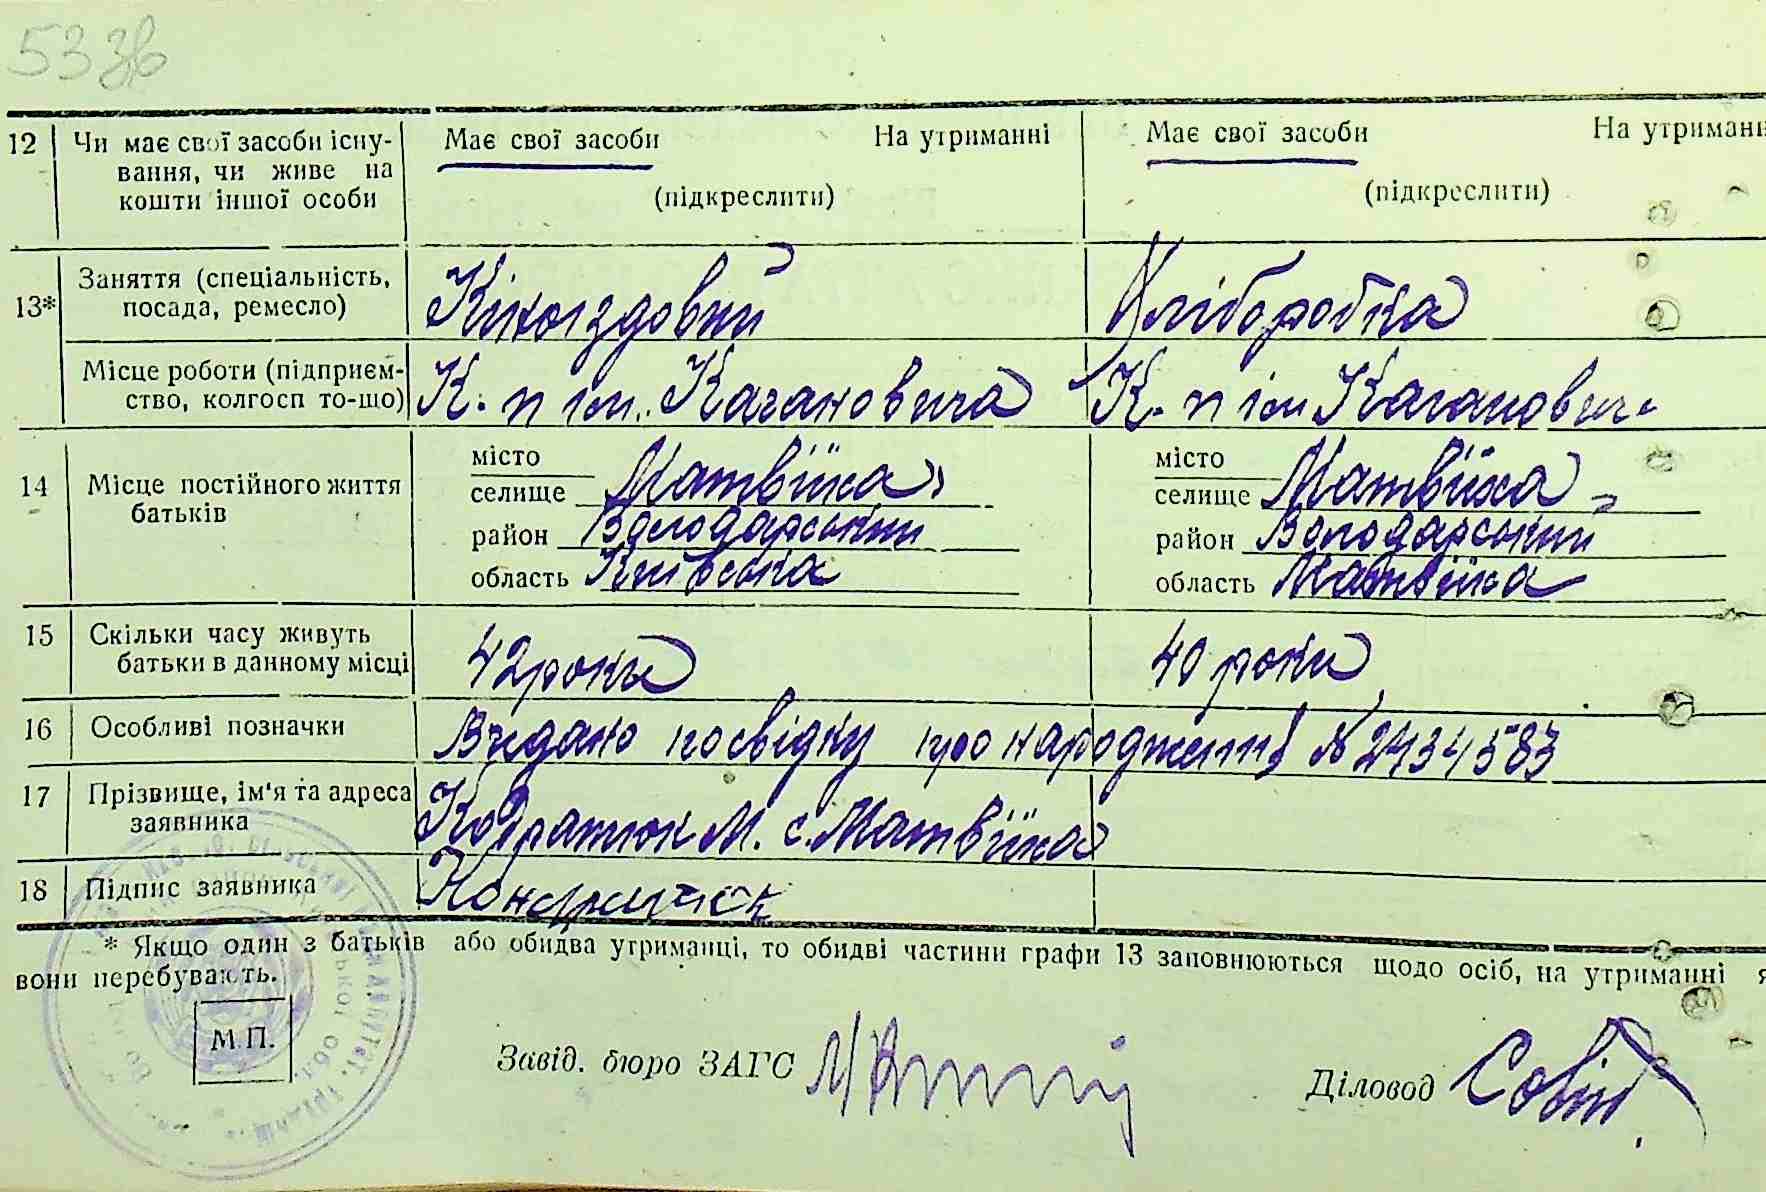 533в
12 Чи має свої засоби існу- Має свої засоби На утриманні Має свої засоби На утриманн
вання, чи живе на
кошти іншої особи (підкреслити) (підкреслити)
13* Заняття (спеціальність,
посада, ремесло) Кіноїздовий Хліборобка
Місце роботи (підприєм-
ство, колгосп то-що) К. п ім. Кагановича К. п ім Кагановича
14 Місце постійного життя
батьків
місто місто
селище Матвіїха селище Матвіїха
район Володарський район Володарський
область Київська область Матвіїха
15 Скільки часу живуть
батьки в данному місці 42 роки 40 роки
16 Особливі позначки Видано посвідку про народження № 2434583
17 Прізвище, ім'я та адреса
заявника Кодратюк М. с. Матвіїха
18 Підпис заявника Кондратюк
* Якщо один з батьків або обидва утриманці, то обидві частини графи 13 заповнюються щодо осіб, на утриманні я
вони перебувають.
М.П.
Завід. бюро ЗАГС
Діловод